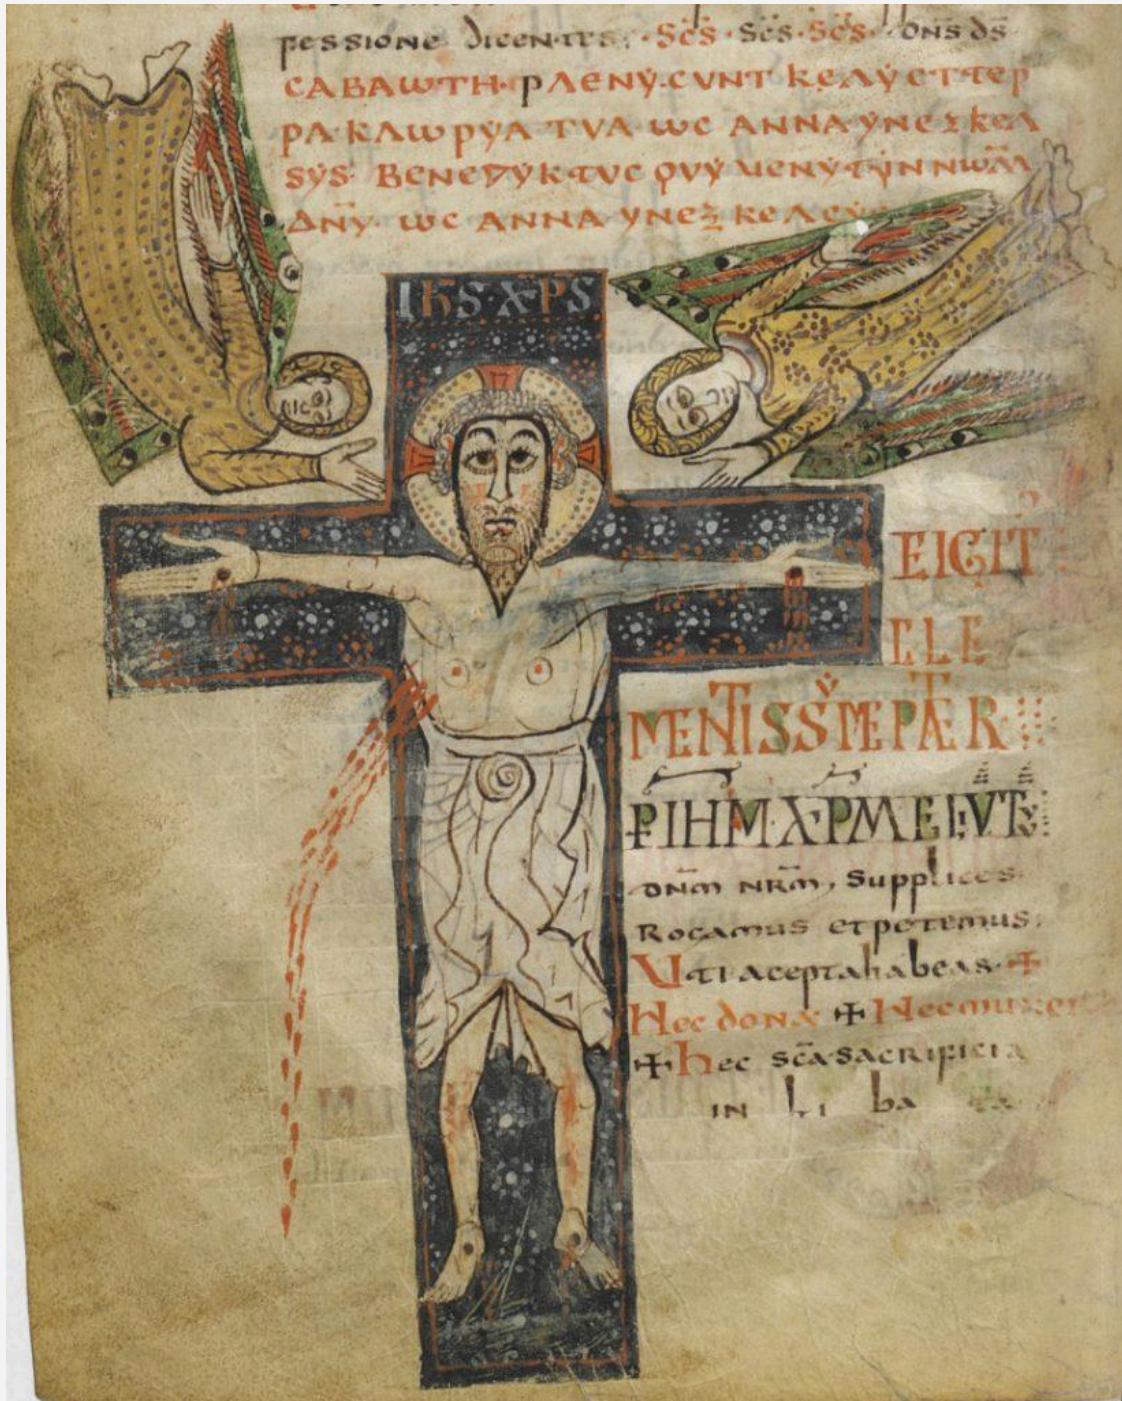 fessione dicentes · Scs̄ · Scs̄ · Scs̄ · dns̄ ds̄
CABAωTH · PΛENẎ · CVNT KEΛẎ ET TEP
PA · KΛωPẎA TVA · ωC ANNA ẎNEΞKEΛ
SẎS · BENEDẎKTVC QVẎ VENẎT ẎN NωM̄
ΔN̄Ẏ · ωC ANNA ẎNEΞKEΛ
IHS · XPS
EIGIT
CLE
MENTISSẎME PATER
P IHM · XPM
dnm̄ nrm̄, supplices
Rogamus et petemus;
Uti acepta habeas · ✠
Hec dona ✠ Hec mu
✠ hec sc̄a sacrificia
in